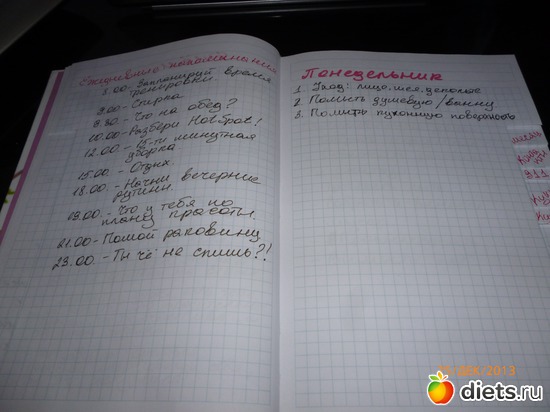 Ежедневные напоминания
8.00-Запланируй время
тренировки.
9.00-Стирка.
9.30.-Что на обед?
10.00-Разбери
12.00.-15-ти минутная
уборка
15.00.-Отдых.
18.00-Начни вечерние
рутины.
19.00.-Что у тебя по
плану красоты.
21.00-Помой раковину
23.00.-Ты чё не спишь?!
Панедельник
1. Уход: лицо, шея, декольте
2. Помыть душевую/ванну
3. Помыть кухонную поверхность
ДЕК/2013
diets.ru